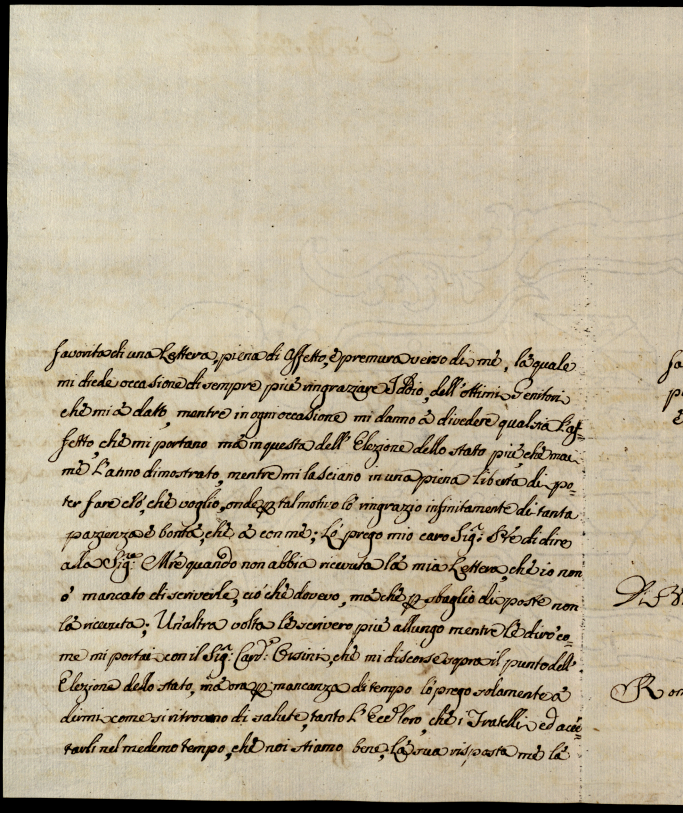 favorita di una Lettera, piena di Affetto, è premura verso di mè, là quale
mi diede occasione di sempre più ringrazzare Iddio, dell'ottimi Genitori
chè mi à datto, mentre in ogni occasione mi danno à divedere qual sia L'af=
fetto, chè mi portano mà in questa dell'Elezione dello stato più, chè mai
mè L'anno dimostrato, mentre mi lasciano in una piena libertà di po=
ter fare ciò, chè voglio, onde p tal motivo lò ringrazio infinitamente di tanta
pazienza è bontà, chè à con mè; Lò prego mio caro Sig: Pre di dire
a la Sig:ra Mre quando non abbia ricevuta là mia Lettera, chè io non
ò mancato di scriverle, ciò chè dovevo, mà chè p sbaglio di poste non
là ricevuta; Un'altra volta lè scriverò più allungo mentre Lè dirò co=
me mi portai con il Sig: Card: Orsini, chè mi discorse sopra il punto dell'
Elezione dello stato, mà ora p mancanza di tempo lò prego solamente à
dirmi come si ritrovano di salute, tanto L'Ecc: loro, chè i Fratelli, ed acer=
tarli nel medemo tempo, chè noi stiamo bene, Là sua risposta mè là